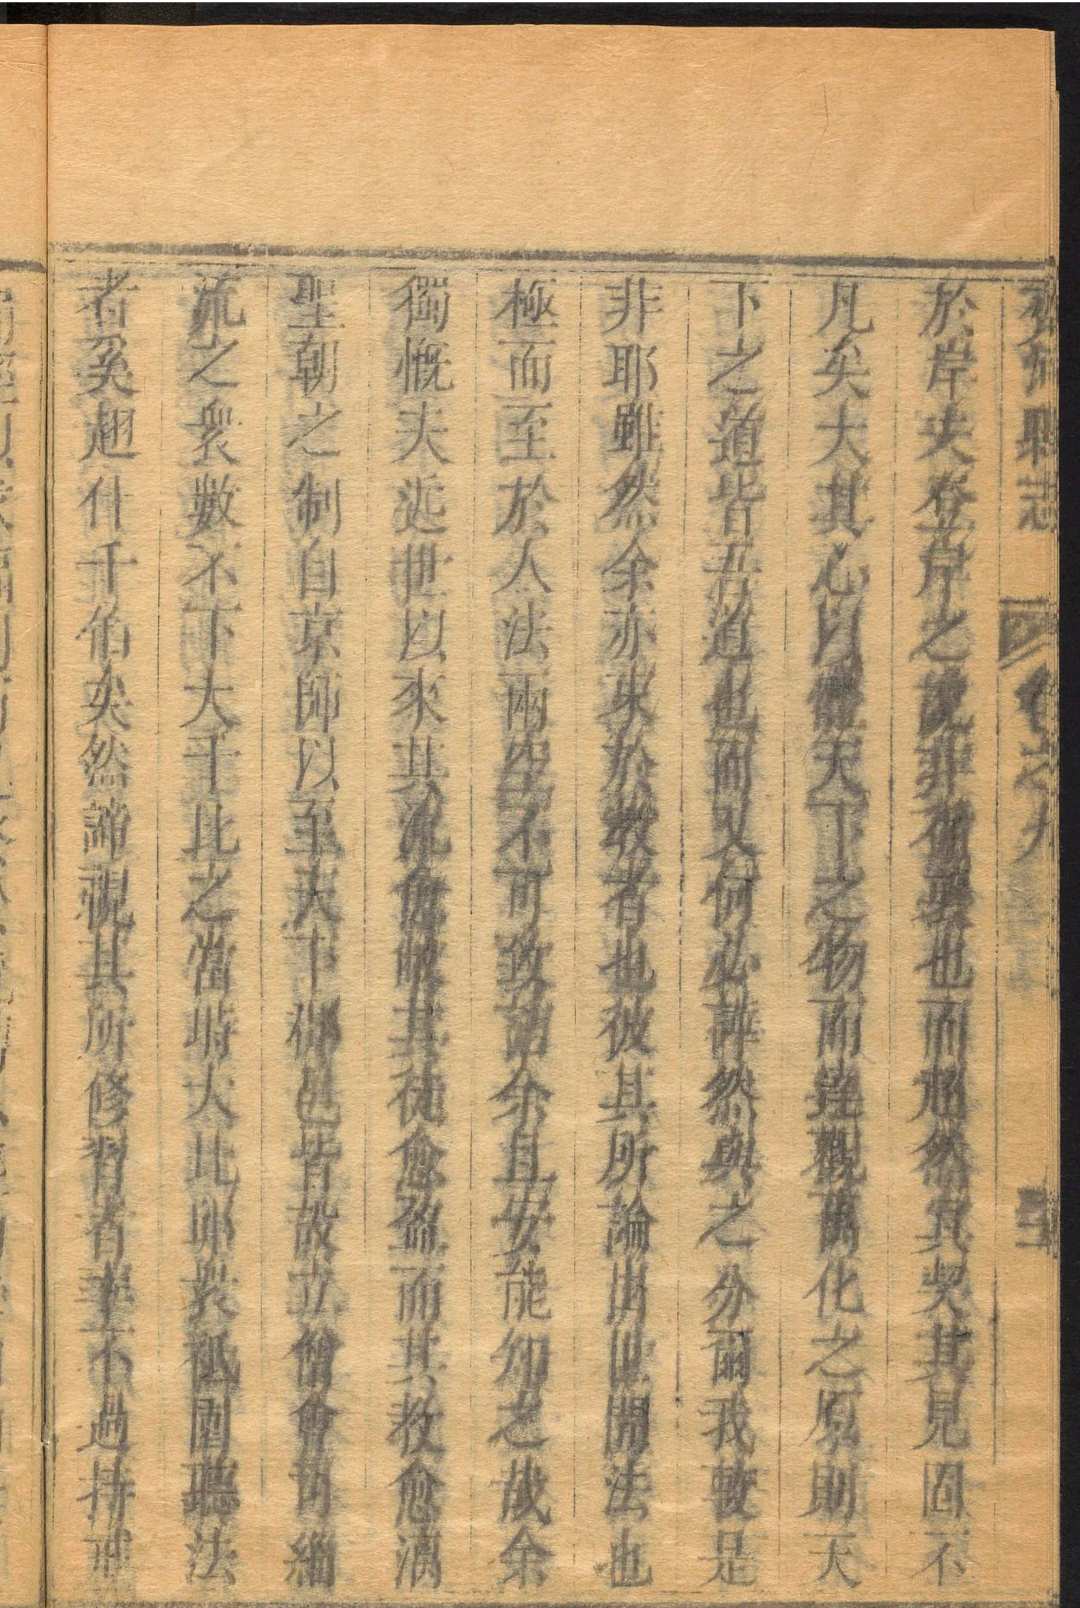 志 卷之九
於岸夫登岸之說非儒異也而超然冥契其見固不
凡矣大其心以體天下之物而達觀萬化之原則天
下之道皆吾道也而又何必譁然與之分爾我較是
非耶雖然余亦束於教者也彼其所論出世間法也
極而至於人法兩空不可致詰余且安能知之哉余
獨慨夫近世以來其流愈
其徒愈盈而其教愈漓
聖朝之制自京師以至天下郡邑皆設立僧會司緇
流之衆數不下大千比之當時大比郎衆祇園聽法
者奚翅什千伯矣然諦視其所修習者率不過持戒